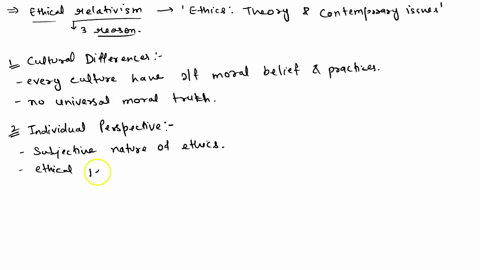 ⇒ Ethical relativism → 'Ethics: Theory & Contemporary issues'
↳ 3 reason.
1 Cultural Differences:-
- every culture have d/f moral belief & practices.
- no universal moral truth.
2 Individual Perspective:-
- Subjective nature of ethics.
- ethical